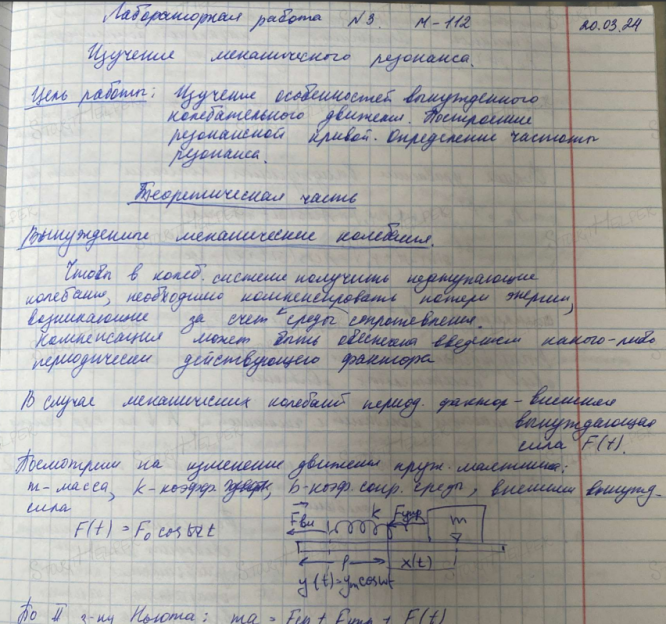 Лабораторная работа №3. М-112 20.03.24
Изучение механического резонанса.
Цель работы: Изучение особенностей вынужденного
колебательного движения. Построение
резонансной кривой. Определение частоты
резонанса.
Теоретическая часть
Вынужденные механические колебания.
Чтобы в колеб. системе получить незатухающие
колебания, необходимо компенсировать потери энергии,
возникающие за счет среды сопротивления.
Компенсация может быть обеспечена введением какого-либо
периодически действующего фактора
В случае механических колебаний период. фактор - внешняя
вынуждающая
сила F(t).
Посмотрим на изменение движения пруж. маятника:
m-масса, k-коэфф. b-коэф. сопр. среды, внешняя вынужд.
сила
F(t) = F₀ cos t
Fвн k Fупр m
l x(t)
y(t)=yₘcosωt
По II з-ну Ньютона: ma = + Fупр + F(t)